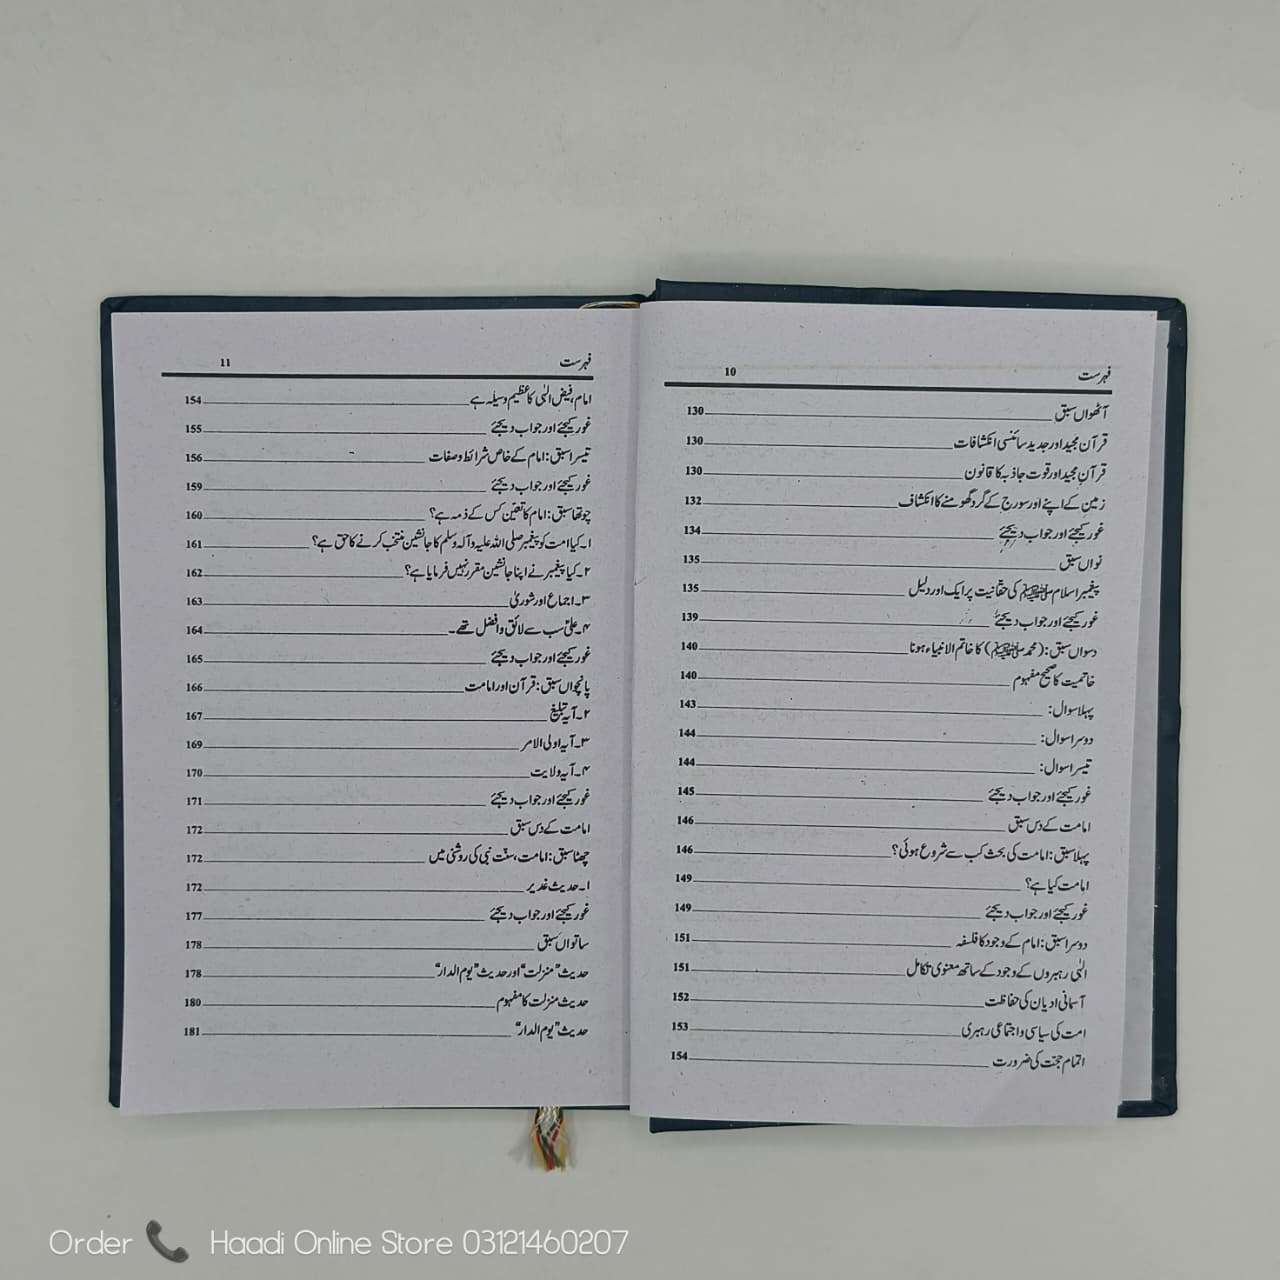 فہرست 10
آٹھواں سبق 130
قرآن مجید اور جدید سائنسی انکشافات 130
قرآنِ مجید اور قوت جاذبہ کا قانون 130
زمین کے اپنے اور سورج کے گرد گھومنے کا انکشاف 132
غور کیجئے اور جواب دیجئے 134
نواں سبق 135
پیغمبر اسلام ﷺ کی حقّانیت پر ایک اور دلیل 135
غور کیجئے اور جواب دیجئے 139
دسواں سبق: (محمد ﷺ) کا خاتم الانبیاء ہونا 140
خاتمیت کا صحیح مفہوم 140
پہلا سوال: 143
دوسرا سوال: 144
تیسرا سوال: 144
غور کیجئے اور جواب دیجئے 145
امامت کے دس سبق 146
پہلا سبق: امامت کی بحث کب سے شروع ہوئی؟ 146
امامت کیا ہے؟ 149
غور کیجئے اور جواب دیجئے 149
دوسرا سبق: امام کے وجود کا فلسفہ 151
الٰہی رہبروں کے وجود کے ساتھ معنوی تکامل 151
آسمانی ادیان کی حفاظت 152
امت کی سیاسی و اجتماعی رہبری 153
اتمام حجّت کی ضرورت 154
فہرست 11
امام، فیض الٰہی کا عظیم وسیلہ ہے 154
غور کیجئے اور جواب دیجئے 155
تیسرا سبق: امام کے خاص شرائط و صفات 156
غور کیجئے اور جواب دیجئے 159
چوتھا سبق: امام کا تعیّن کس کے ذمہ ہے؟ 160
۱۔ کیا امت کو پیغمبر صلی اللہ علیہ وآلہ وسلم کا جانشین منتخب کرنے کا حق ہے؟ 161
۲۔ کیا پیغمبر نے اپنا جانشین مقرر نہیں فرمایا ہے؟ 162
۳۔ اجماع اور شوریٰ 163
۴۔ علیؑ سب سے لائق و افضل تھے۔ 164
غور کیجئے اور جواب دیجئے 165
پانچواں سبق: قرآن اور امامت 166
۲۔ آیہ تبلیغ 167
۳۔ آیہ اولی الامر 169
۴۔ آیہ ولایت 170
غور کیجئے اور جواب دیجئے 171
امامت کے دس سبق 172
چھٹا سبق: امامت، سنّت نبی کی روشنی میں 172
۱۔ حدیث غدیر 172
غور کیجئے اور جواب دیجئے 177
ساتواں سبق 178
حدیث "منزلت" اور حدیث "یوم الدار" 178
حدیث منزلت کا مفہوم 180
حدیث "یوم الدار" 181
Order 📞 Haadi Online Store 03121460207